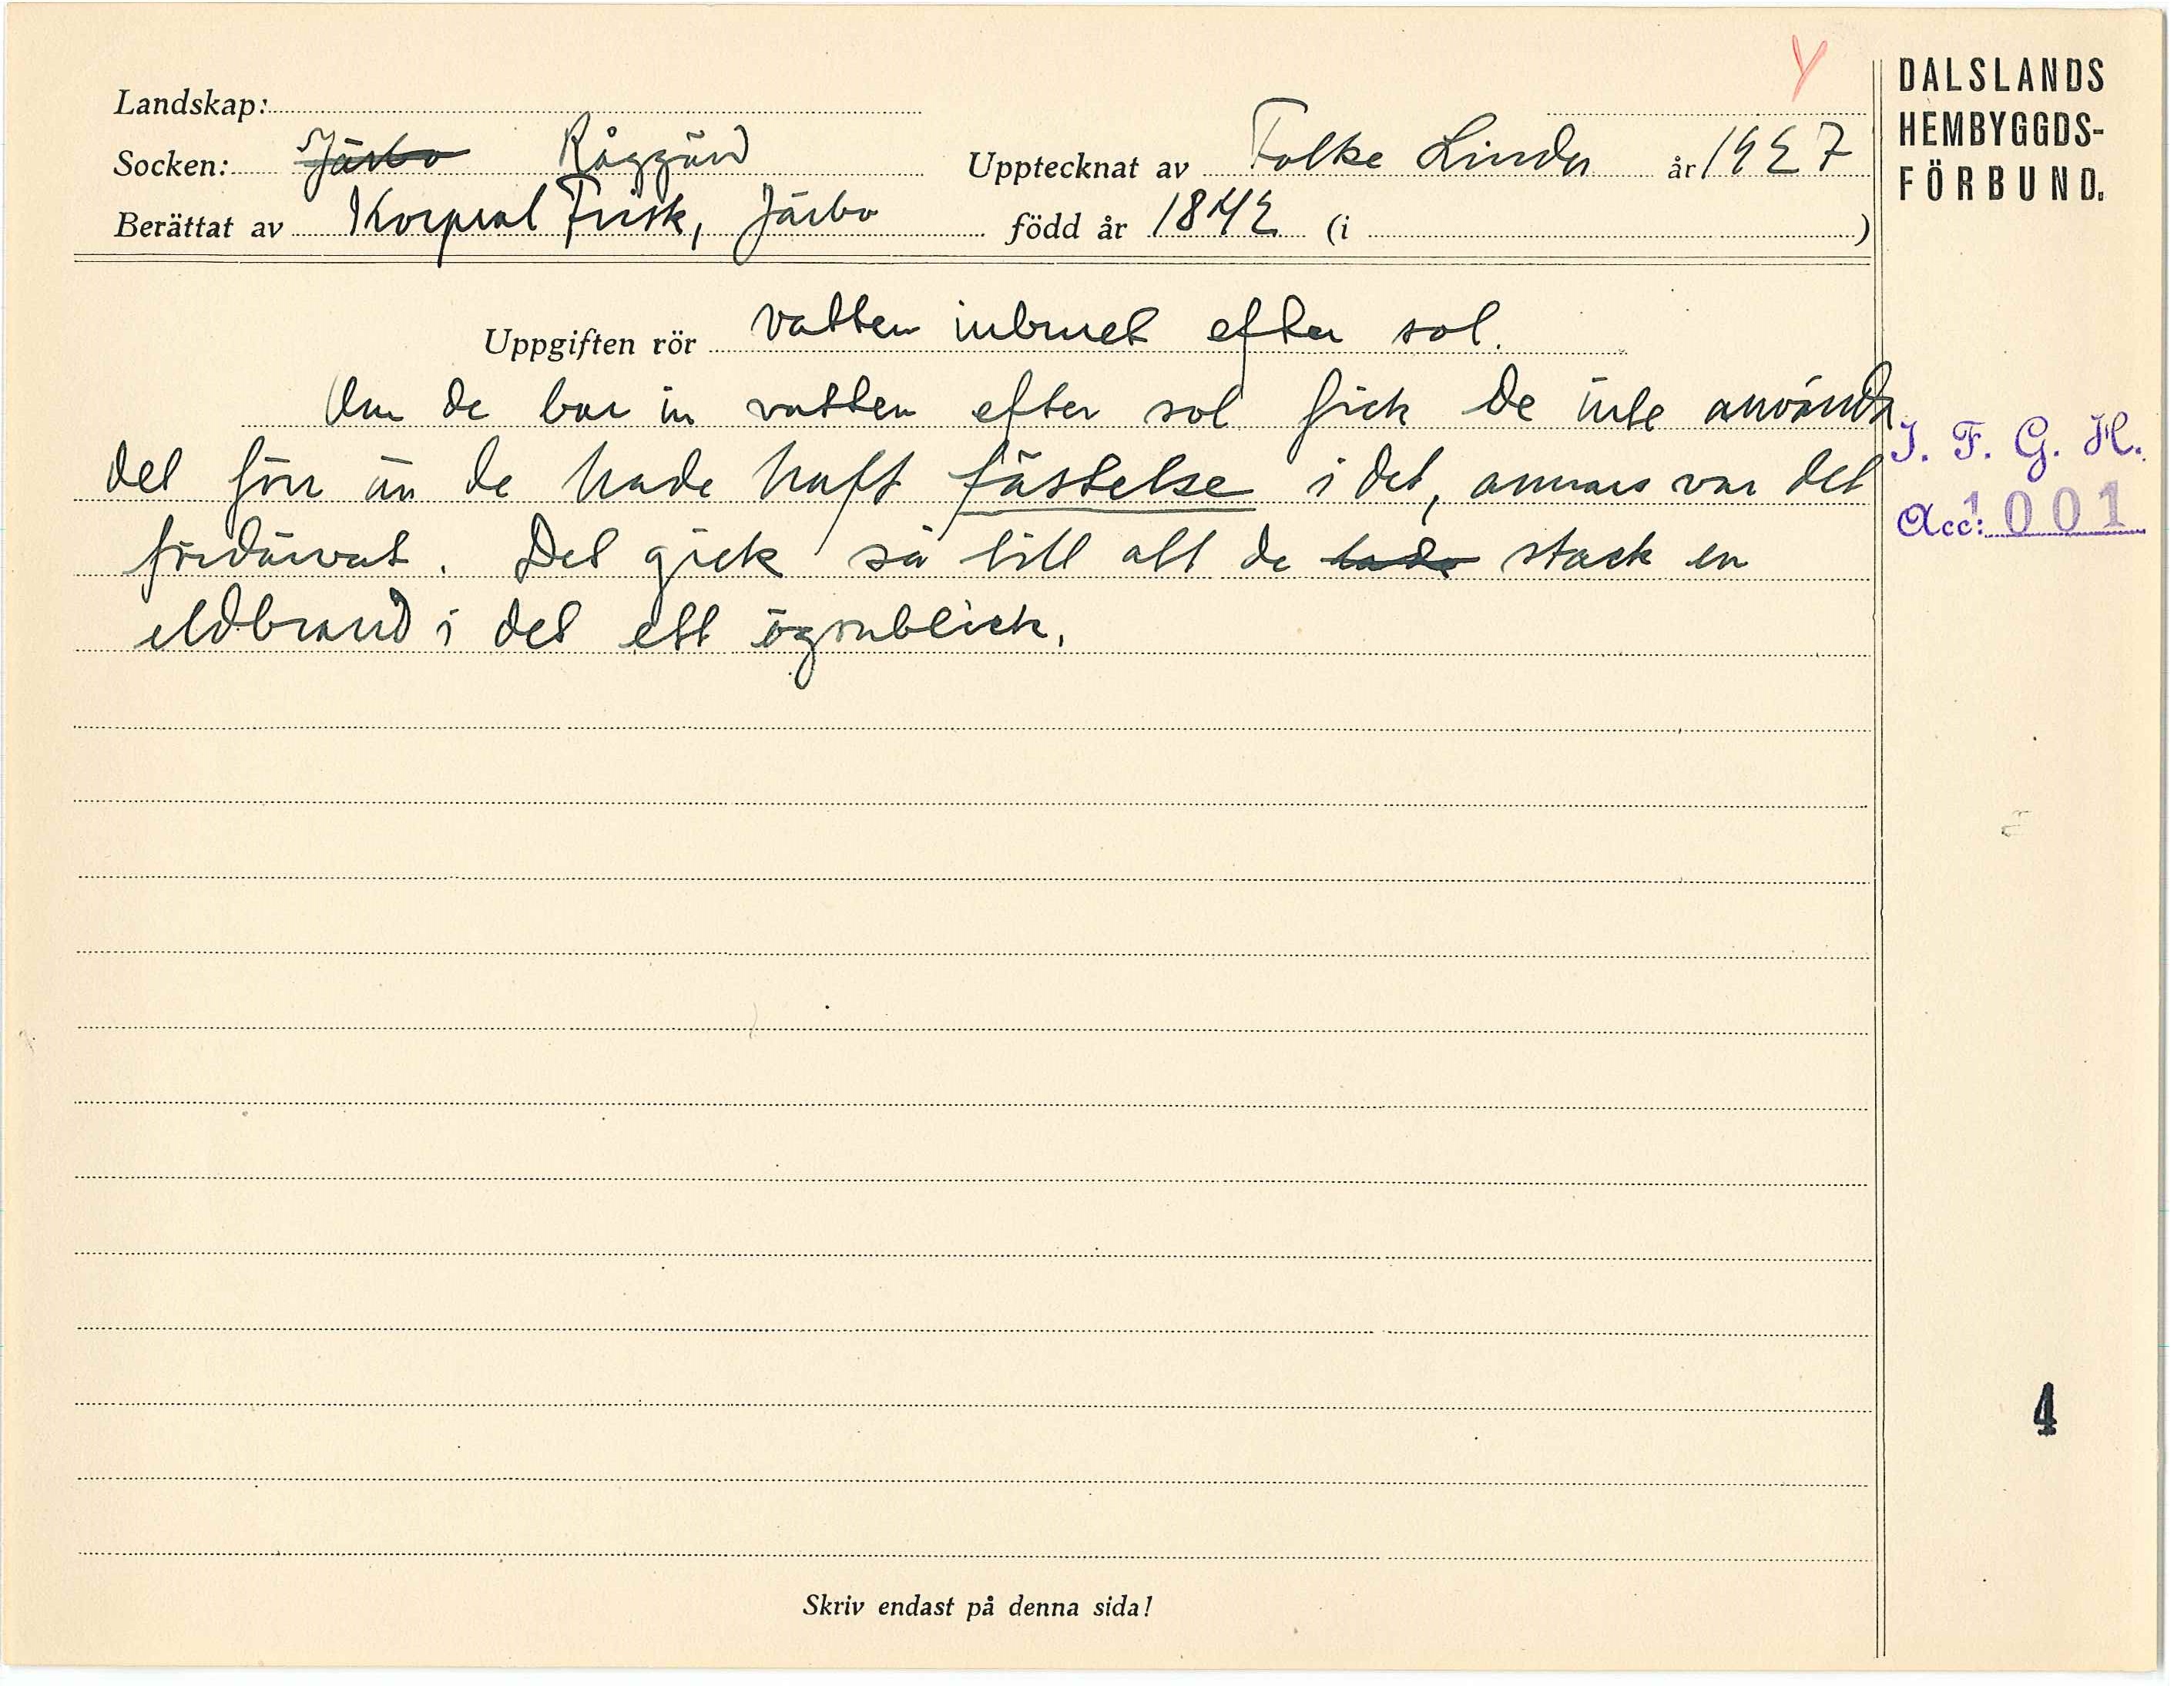 Y
DALSLANDS
HEMBYGGDS-
FÖRBUND.
Landskap:
Socken: Järbo Råggärd Upptecknat av Folke Linder år 1927
Berättat av Korpral Frisk, Järbo född år 1842 (i )
Uppgiften rör vatten inburet efter sol.
Om de bar in vatten efter sol fick de inte använda
det förr än de hade haft fästelse i det, annars var det
fördärvat. Det gick så till att de lade stack en
eldbrand i det ett ögonblick.
I. F. G. H.
Acc: 1001
4
Skriv endast på denna sida!